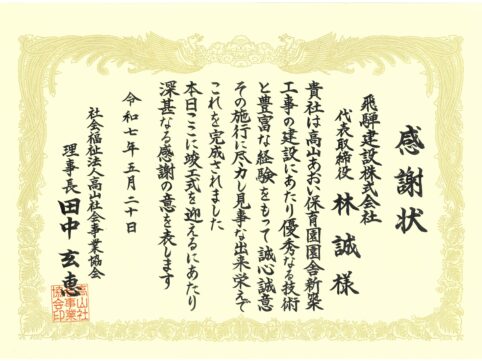 感謝状
飛騨建設株式会社
代表取締役 林 誠 様
貴社は高山あおい保育園園舎新築
工事の建設にあたり優秀なる技術
と豊富な経験をもって誠心誠意
その施行に尽力し見事な出来栄えで
これを完成されました
本日ここに竣工式を迎えるにあたり
深甚なる感謝の意を表します
令和七年五月二十日
社会福祉法人高山社会事業協会
理事長 田中 玄恵
高山社
会事業
協会印